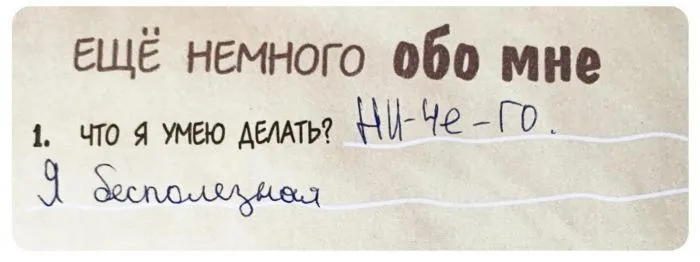 ЕЩЁ НЕМНОГО обо мне
1. ЧТО Я УМЕЮ ДЕЛАТЬ? НИ-че-го.
Я бесполезная